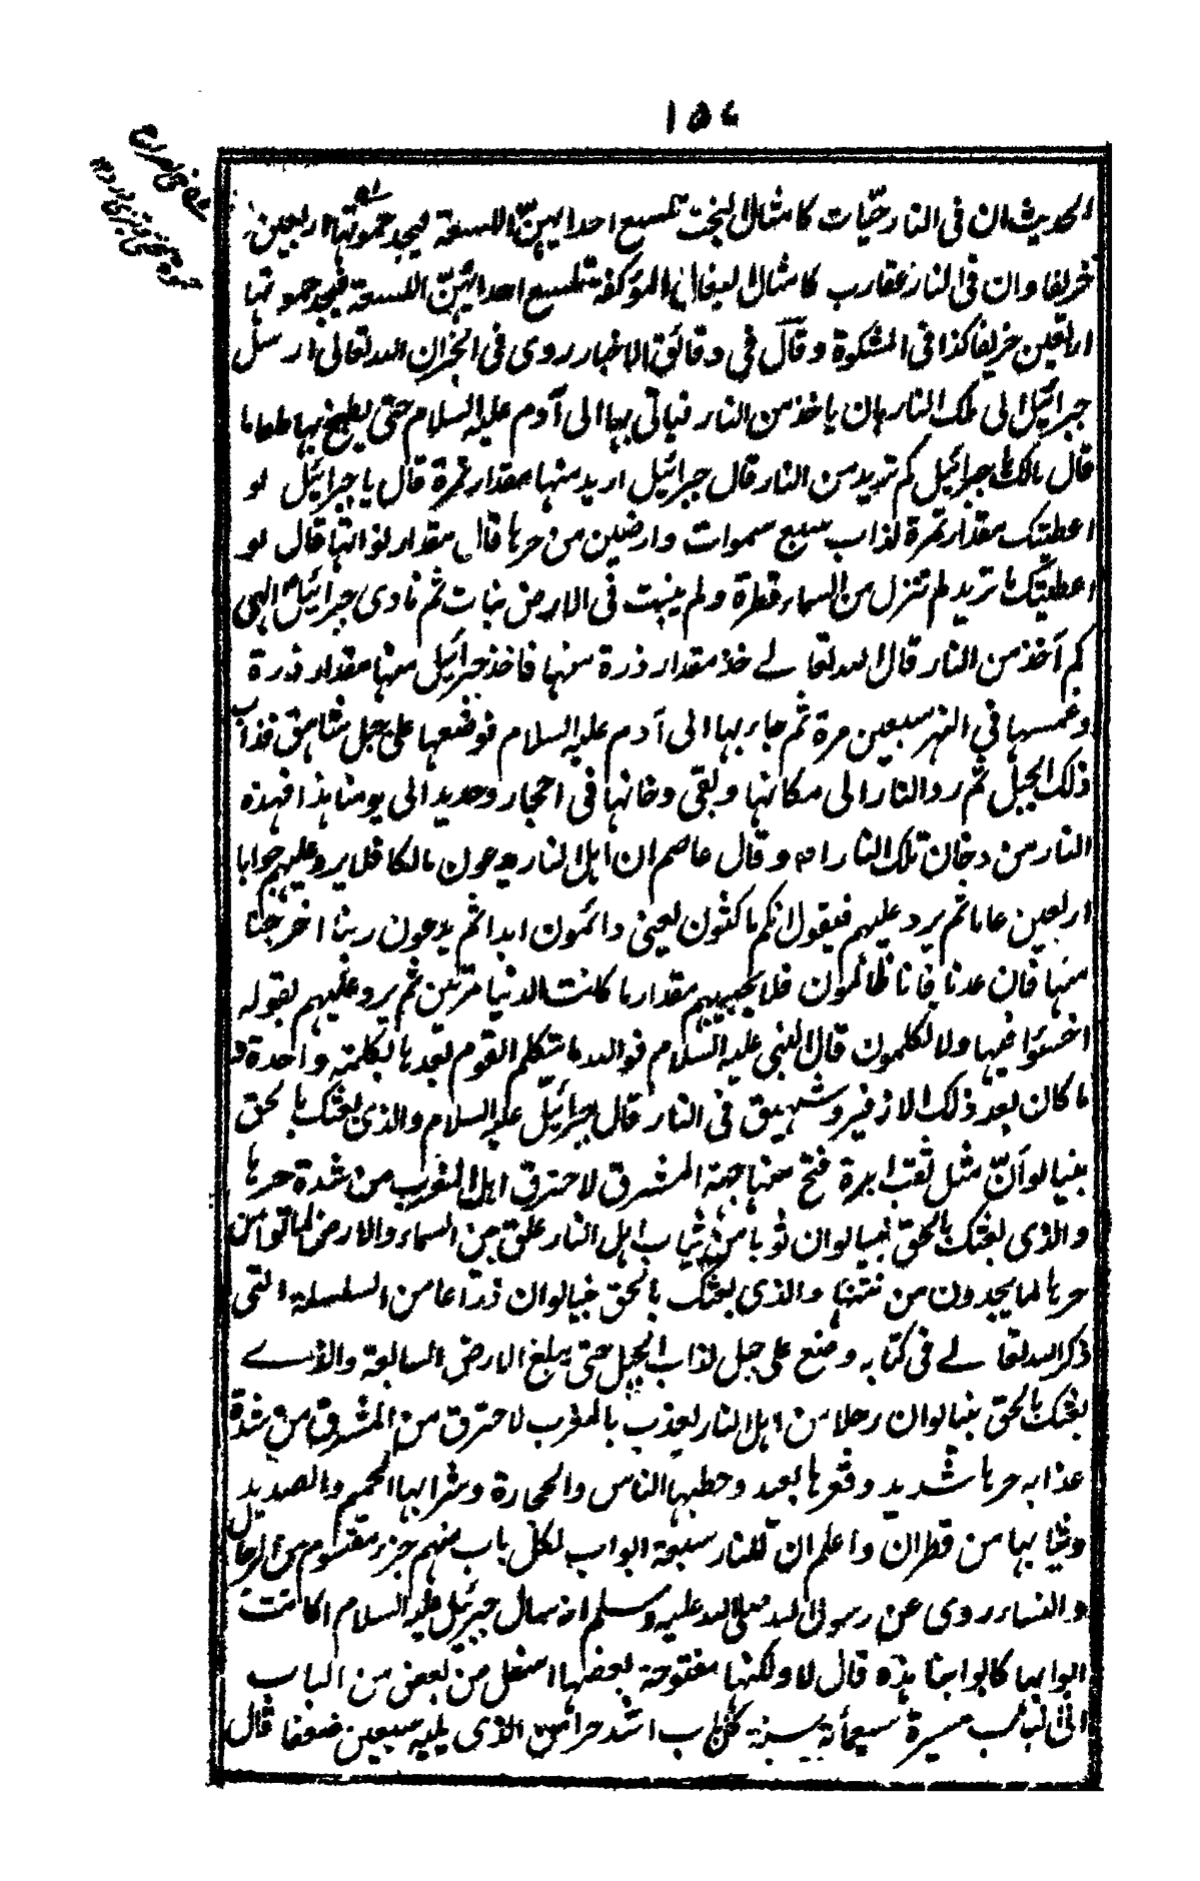 ١٥٧
الحديث ان فى النار حيّات كامثال البخت تلسع احدا يهنّ اللسعة فيجد حموتها اربعين
خريفا وان فى النار عقارب كامثال البغال المؤكفة تلسع احدايهنّ اللسعة فيجد حموتها
اربعين خريفا كذا فى المشكوة وقال فى دقائق الاخبار روى فى الخبر ان الله تعالى ارسل
جبرائيل الى ملك النار بان ياخذ من النار فياتى بها الى آدم عليه السلام حتى يطبخ بها طعاما
قال مالك يا جبرائيل كم تريد من النار قال جبرائيل اريد منها مقدار تمرة قال يا جبرائيل لو
اعطيتك مقدار تمرة لذاب سبع سموات وارضين من حرها قال مقدار نواتها قال لو
اعطيتك ما تريد لم تنزل من السماء قطرة ولم ينبت فى الارض نبات ثم نادى جبرائيل الهى
كم آخذ من النار قال الله تعالے خذ مقدار ذرة منها فاخذ جبرائيل منها مقدار ذرة
وغمسها فى النهر سبعين مرة ثم جاء بها الى آدم عليه السلام فوضعها على جبل شاهق فذاب
ذلك الجبل ثم رد النار الى مكانها وبقى دخانها فى احجار وحديد الى يومنا هذا فهذه
النار من دخان تلك النار اه وقال عاصم ان اهل النار يدعون مالكا فلا يرد عليهم جوابا
اربعين عاما ثم يرد عليهم فيقول انكم ماكثون يعنى دائمون ابدا ثم يدعون ربنا اخرجنا
منها فان عدنا فانا ظالمون فلا يجيبهم مقدار ما كانت الدنيا مرتين ثم يرد عليهم بقوله
اخسؤا فيها ولا تكلمون قال النبى عليه السلام فوالله ما يتكلم القوم بعدها بكلمة واحدة و
ما كان بعد ذلك الا زفير وشهيق فى النار قال جبرائيل عليه السلام والذى بعثك بالحق
نبيا لو انّ مثل ثقب ابرة فتح منها جهة المشرق لاحترق اهل المغرب من شدة حرها
والذى بعثك بالحق نبيا لو ان ثوبا من ثياب اهل النار علق بين السماء والارض لماتوا من
حرها لما يجدون من نتنها والذى بعثك بالحق نبيا لو ان ذراعا من السلسلة التى
ذكر الله تعالے فى كتابه وضع على جبل لذاب الجبل حتى يبلغ الارض السابعة والذے
بعثك بالحق نبيا لو ان رجلا من اهل النار يعذب بالمغرب لاحترق من المشرق من شدة
عذابه حرها شديد وقعرها بعيد وحطبها الناس والحجارة وشرابها الحميم والصديد
وثيابها من قطران واعلم ان للنار سبعة ابواب لكل باب منهم جزء مقسوم من الرجال
والنساء روى عن رسول الله صلى الله عليه وسلم انه سال جبرئيل عليه السلام اكانت
ابوابها كابوابنا هذه قال لا ولكنها مفتوحة بعضها اسفل من بعض من الباب
الى الباب مسيرة سبعمائة سنة كل باب اشد حرا من الذى يليه سبعين ضعفا قال